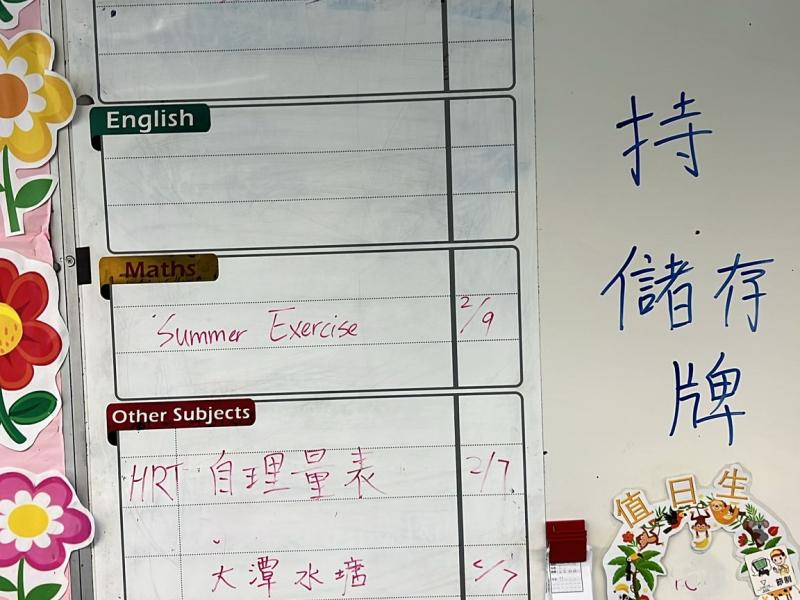 English
Maths
Summer Exercise 2/9
Other Subjects
HRT 自理量表 2/7
大潭水塘
持
儲存
牌
值日生
節制